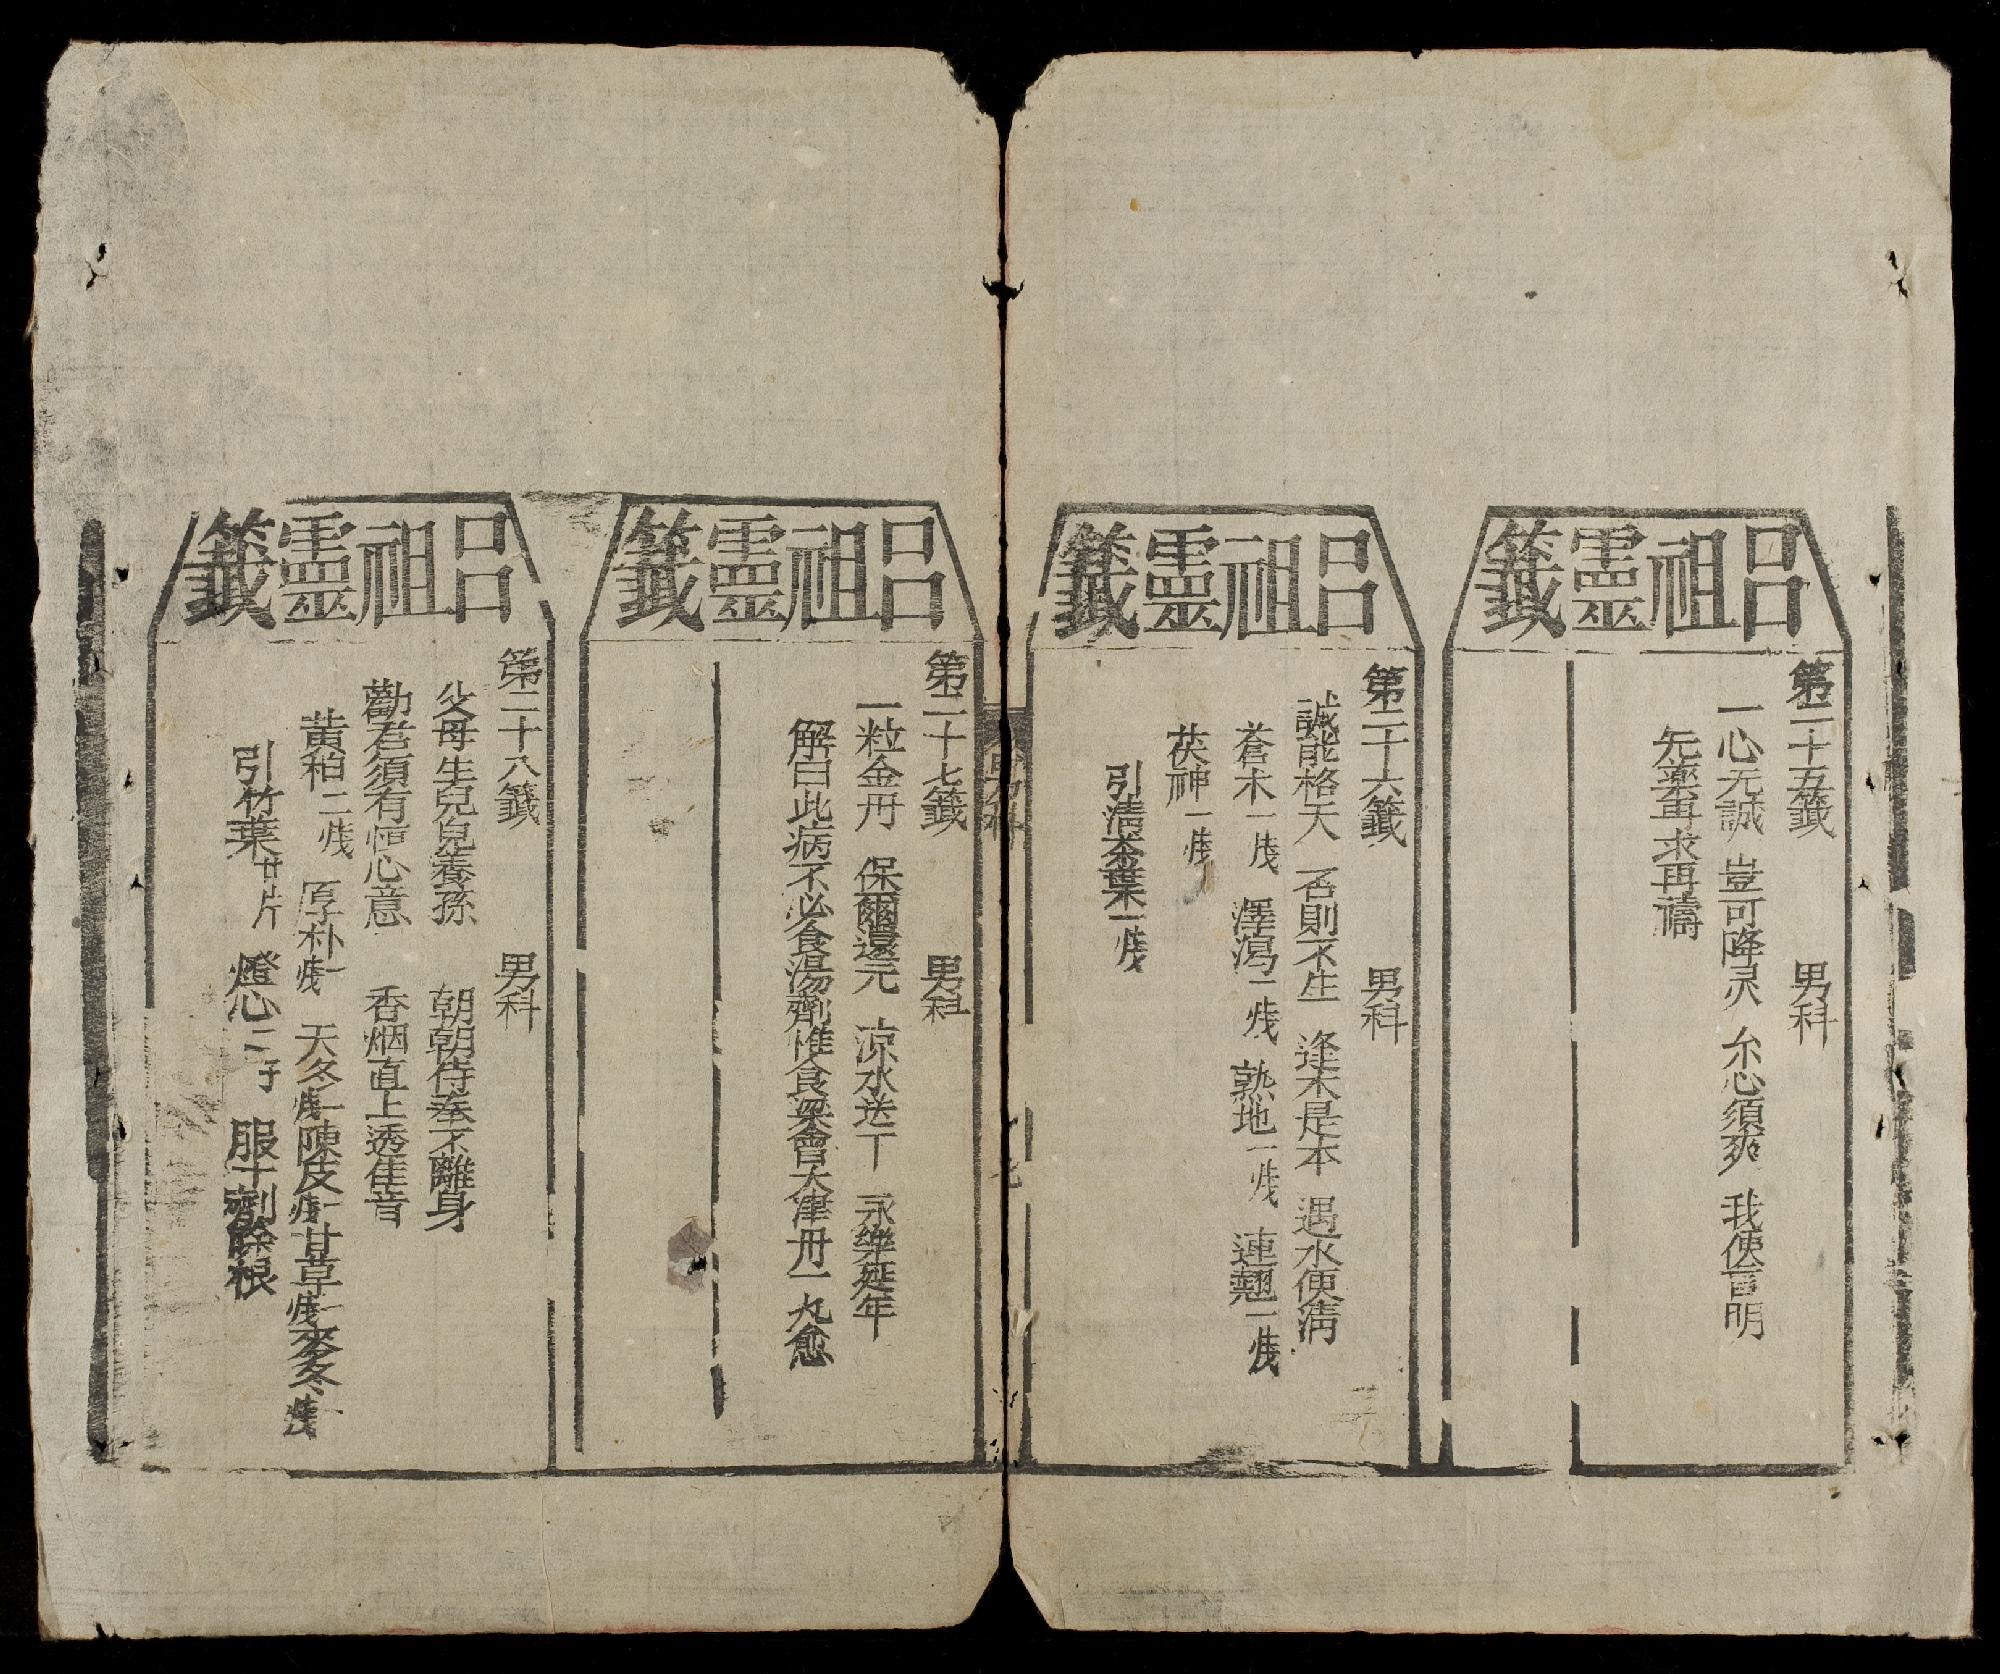 呂祖靈籤
第二十五籤 男科
一心无誠 豈可降灵 尔心須爽 我便言明
无藥再求再禱
呂祖靈籤
第二十六籤 男科
誠能格天 否則不生 逢木是本 遇水便清
蒼朮一戋 澤瀉一戋 熟地一戋 連翹一戋
茯神一戋
引清茶葉一戋
男科
呂祖靈籤
第二十七籤 男科
一粒金丹 保爾還元 涼水送下 永樂延年
解曰此病不必食湯劑惟食梁會大津丹一九愈
呂祖靈籤
第二十八籤 男科
父母生兒兒養孫 朝朝侍奉不離身
勸君須有恒心意 香烟直上透佳音
黃柏二戋 厚朴一戋 天冬一戋 陳皮一戋 甘草一戋 麥冬一戋
引竹葉廿片 燈心二子 服十劑除根